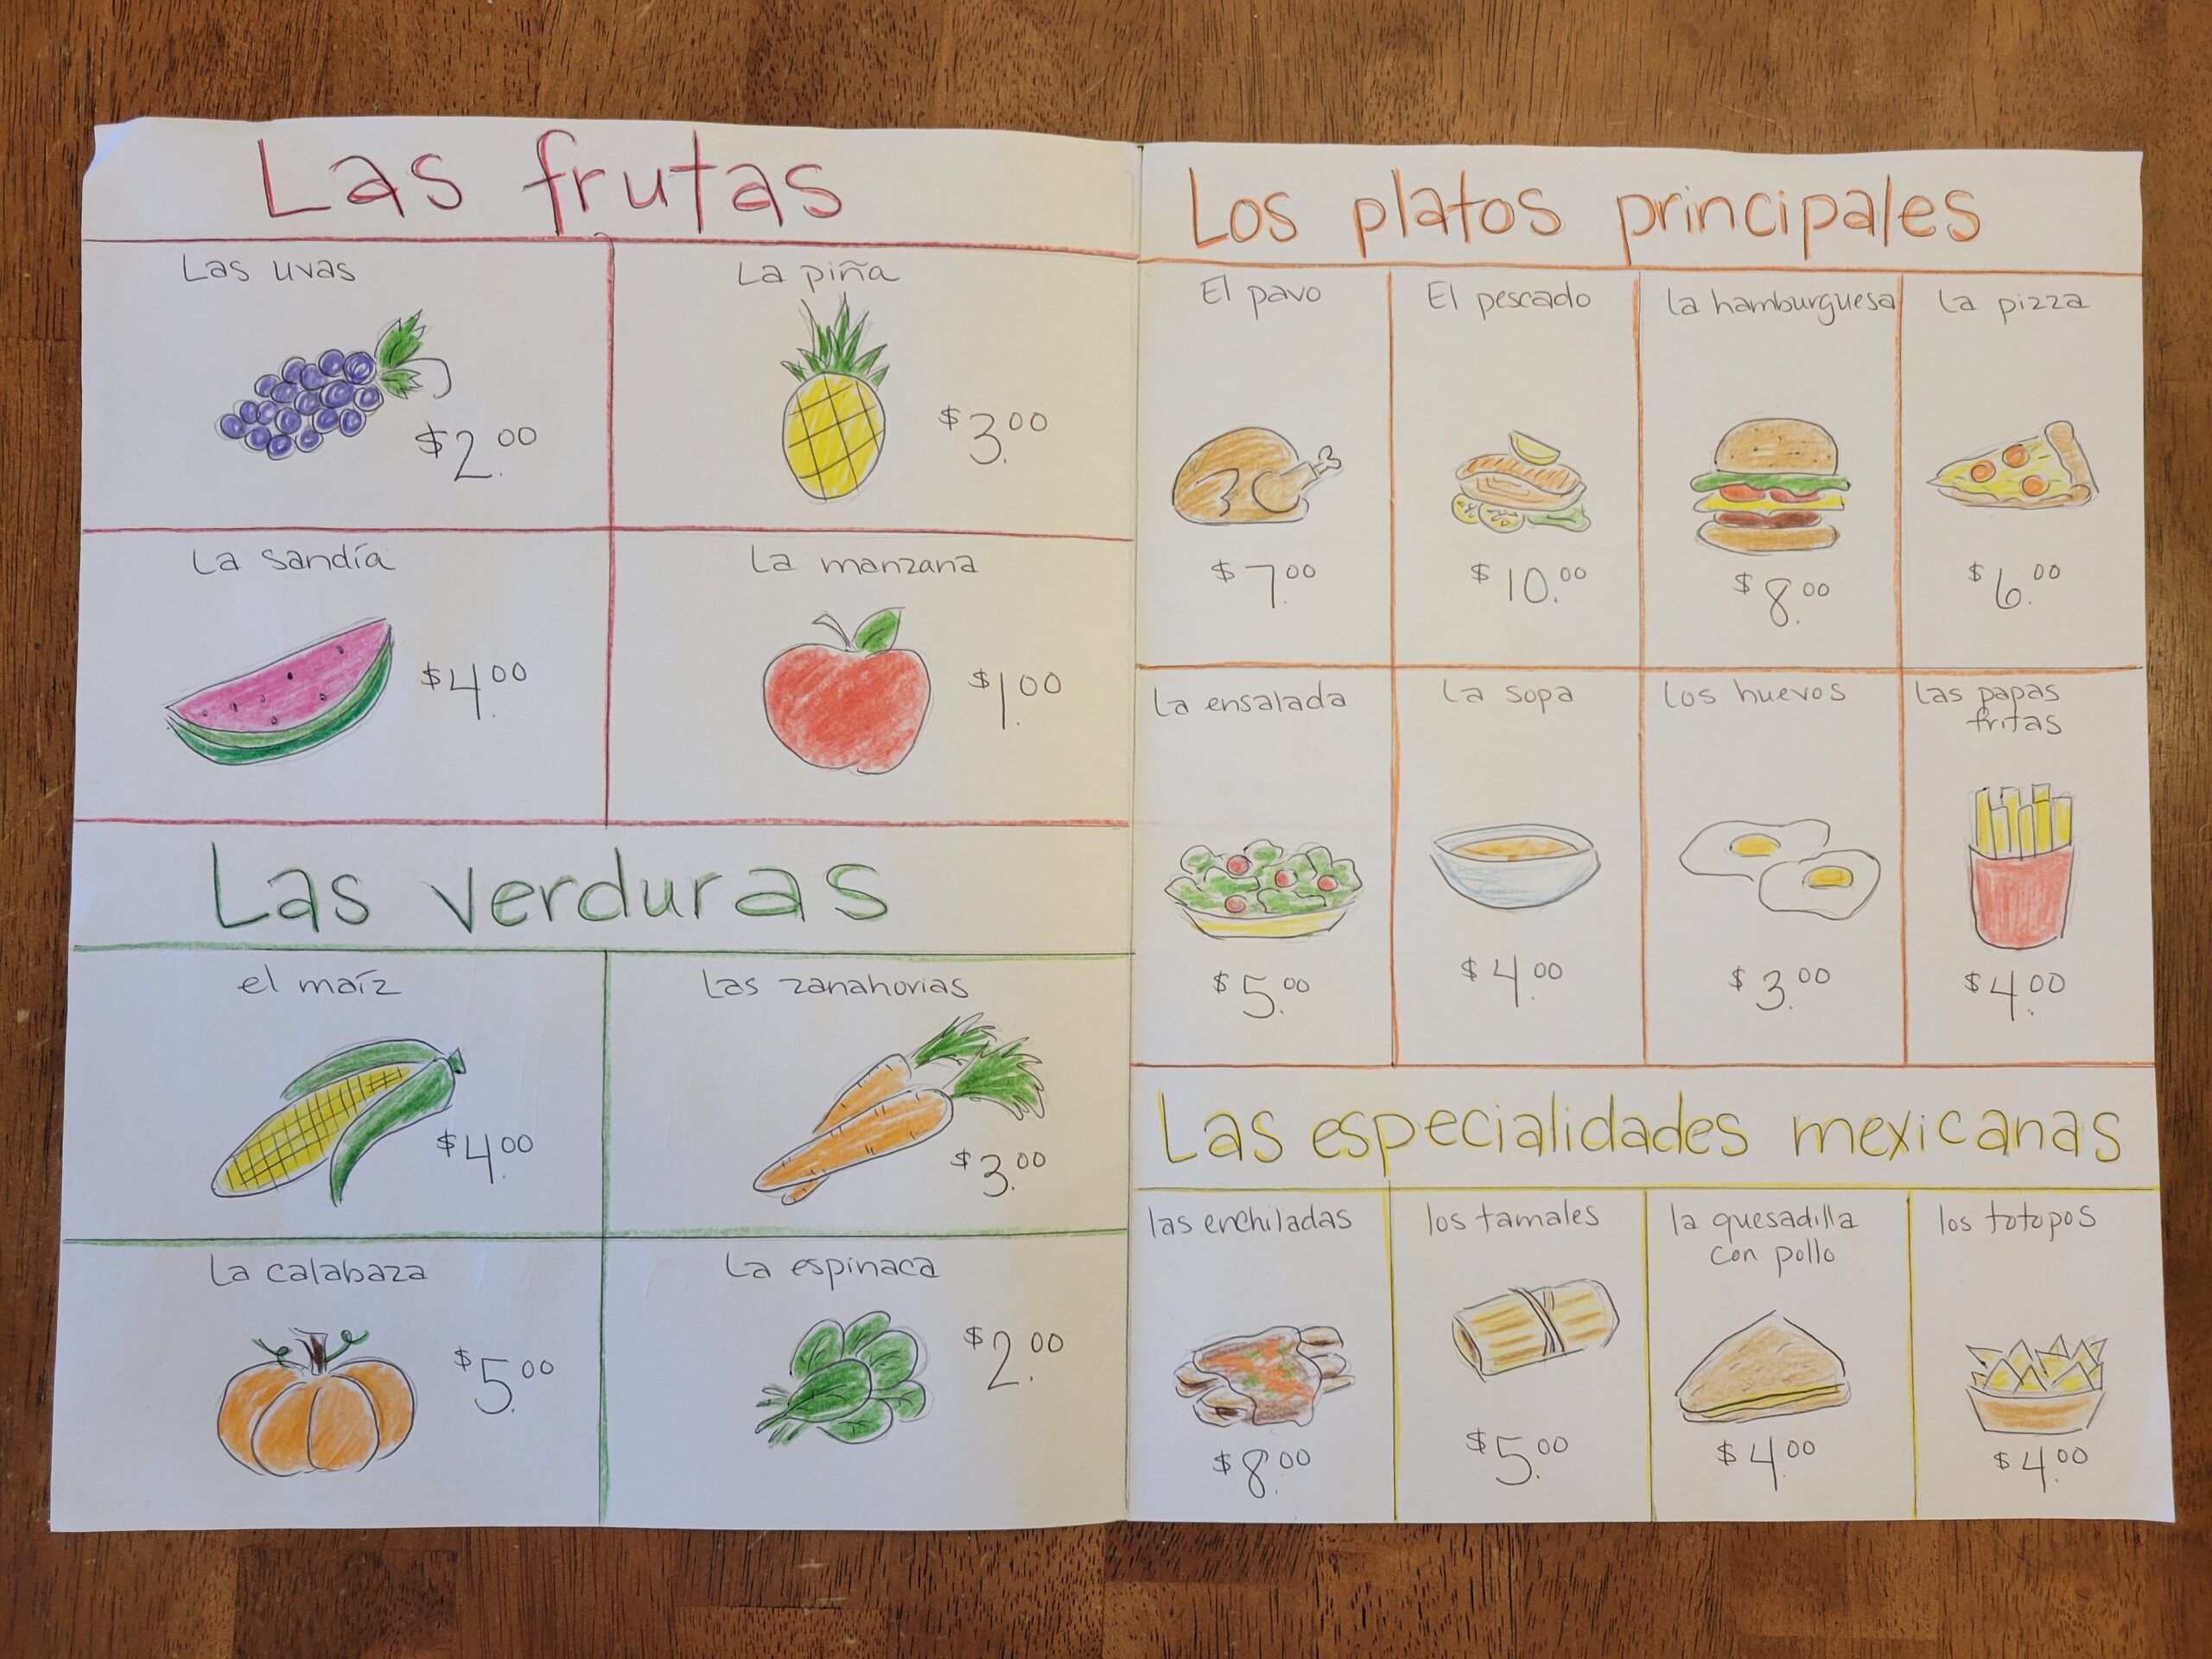 Las frutas
Las uvas
$2.00
La piña
$3.00
La sandía
$4.00
La manzana
$1.00
Las verduras
el maíz
$4.00
Las zanahorias
$3.00
La calabaza
$5.00
La espinaca
$2.00
Los platos principales
El pavo
$7.00
El pescado
$10.00
la hamburguesa
$8.00
La pizza
$6.00
La ensalada
$5.00
La sopa
$4.00
Los huevos
$3.00
Las papas
fritas
$4.00
Las especialidades mexicanas
las enchiladas
$8.00
los tamales
$5.00
la quesadilla
con pollo
$4.00
los totopos
$4.00